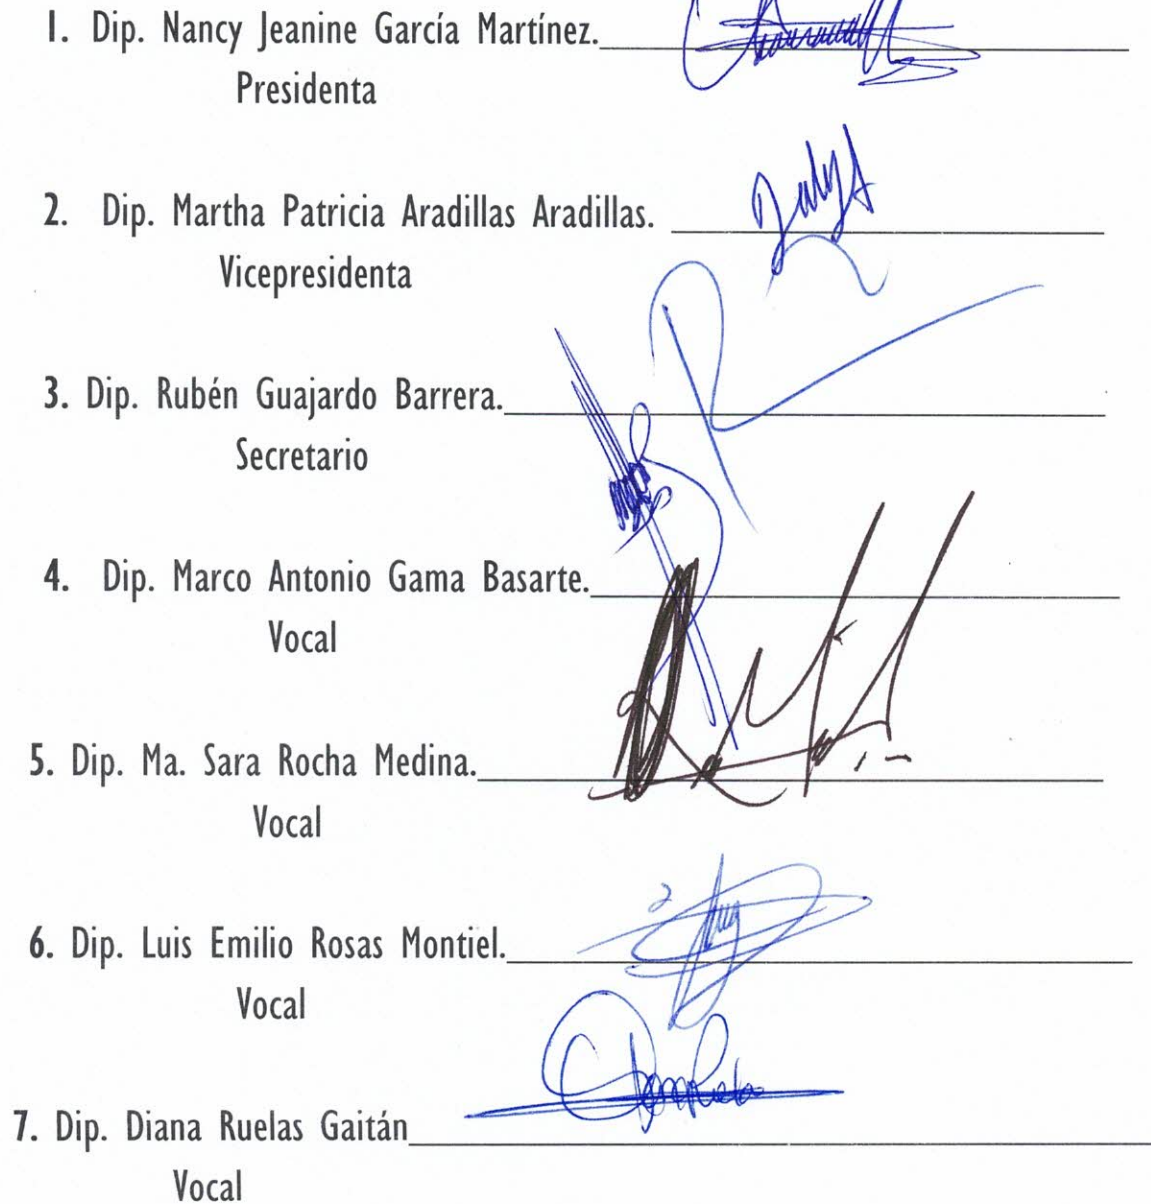 1. Dip. Nancy Jeanine García Martínez.
Presidenta
2. Dip. Martha Patricia Aradillas Aradillas.
Vicepresidenta
3. Dip. Rubén Guajardo Barrera.
Secretario
4. Dip. Marco Antonio Gama Basarte.
Vocal
5. Dip. Ma. Sara Rocha Medina.
Vocal
6. Dip. Luis Emilio Rosas Montiel.
Vocal
7. Dip. Diana Ruelas Gaitán
Vocal